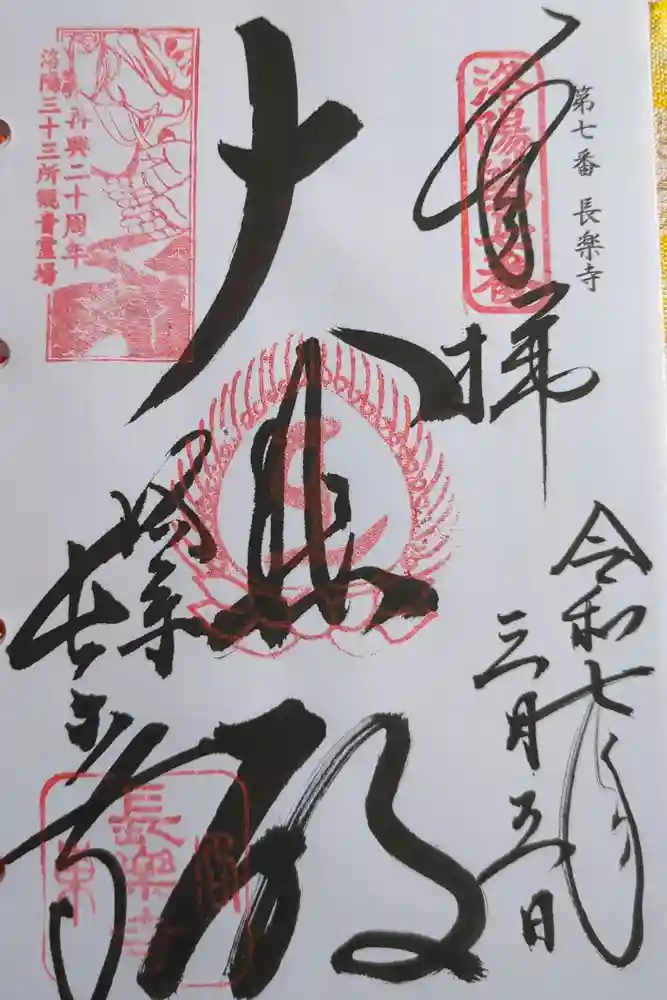 第七番 長楽寺
奉拝
洛陽第七番
令和七年
三月五日
大悲殿
長樂寺
再興二十周年
洛陽三十三所観音霊場
長樂寺